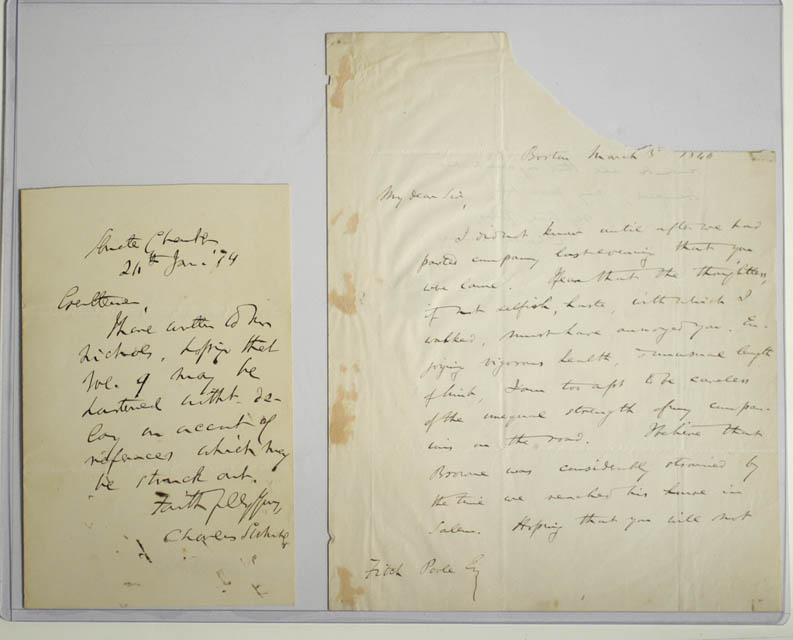 Senate Chamber
26th Jan. '74
Gentlemen,
I have written to Mr
Nichols, hoping that
Vol. 9 may be
hastened witht. de-
lay on account of
references which may
be struck out.
Faithfully Yours,
Charles Sumner
Boston March 5th 1840
My dear Sir,
I did not know until after we had
parted company last evening that you
were lame. I fear that the thoughtless,
if not selfish, haste, with which I
walked, must have annoyed you. En-
joying vigorous health, & unusual length
of limb, I am too apt to be careless
of the unequal strength of my compan-
ions on the road. I believe that
Browne was considerably strained by
the time we reached his house in
Salem. Hoping that you will not
Fitch Poole Esq